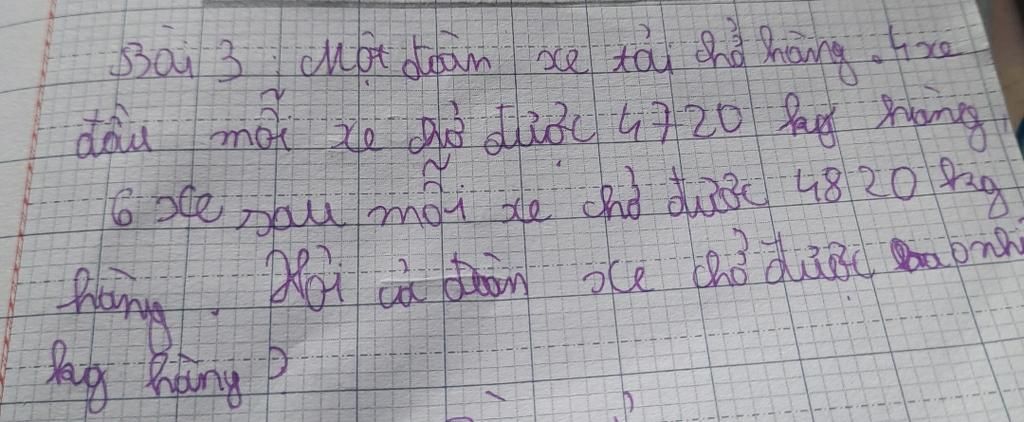 Bài 3 : Một đoàn xe tải chở hàng. 4 xe
đầu mỗi xe chở được 4720 kg hàng,
6 xe sau mỗi xe chở được 4820 kg
hàng. Hỏi cả đoàn xe chở được bao nhi
kg hàng?